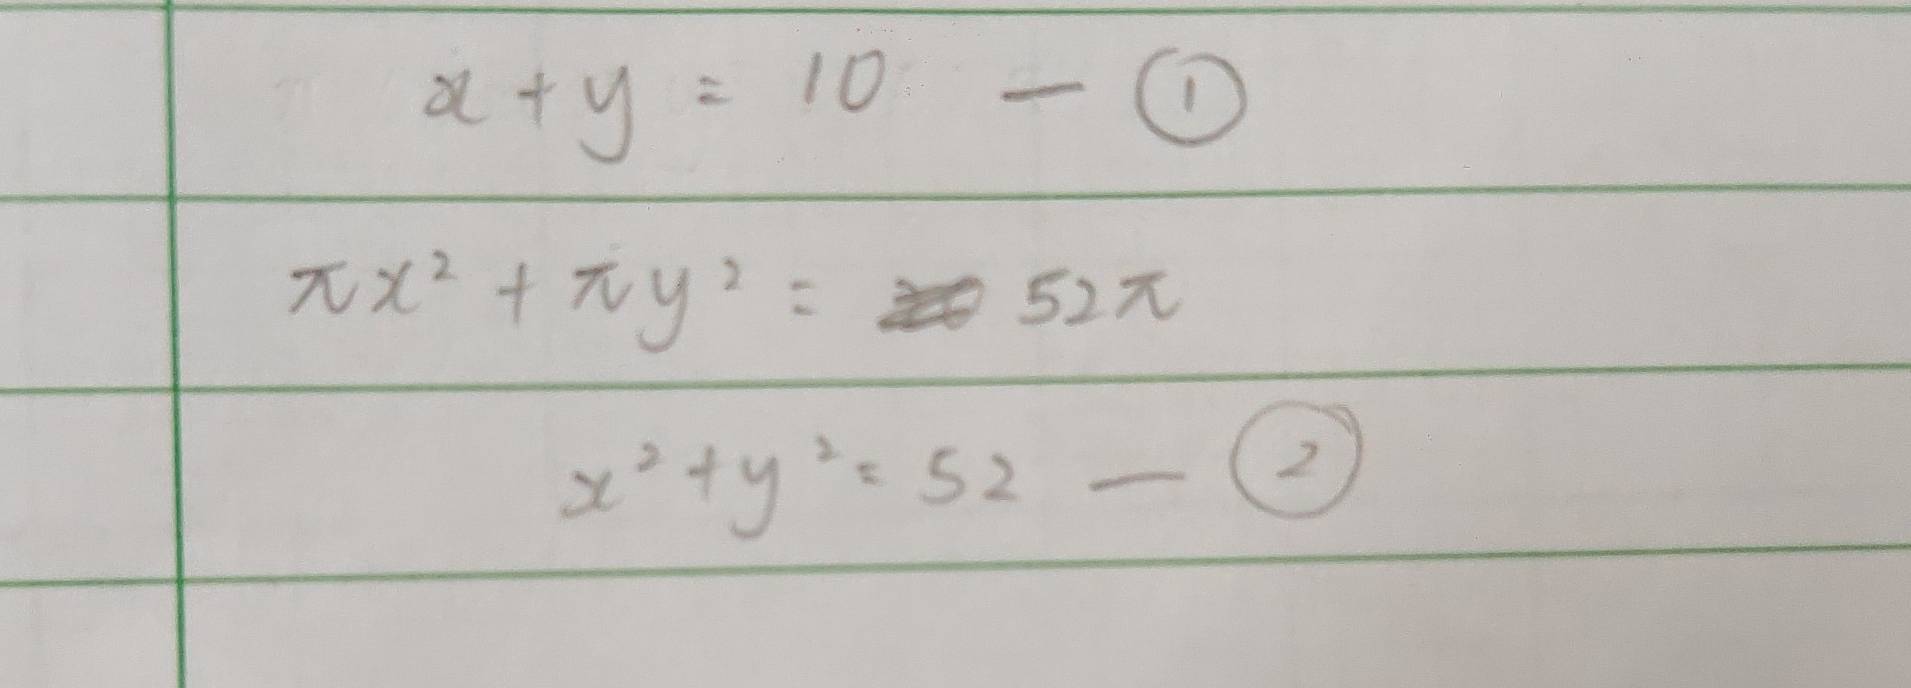 x + y = 10 — ①
πx² + πy² = 52π
x² + y² = 52 — ②